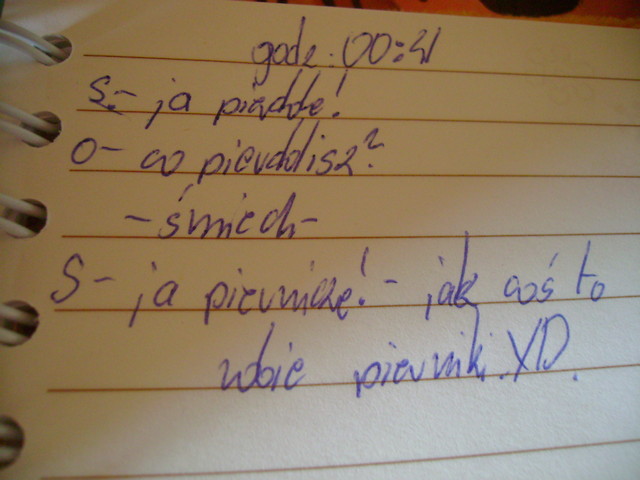 godz: 00:41
S:- ja pierdole!
O- co pierdolisz?
-śmiech-
S- ja piernicze! - jak coś to
robie pierniki. XD.